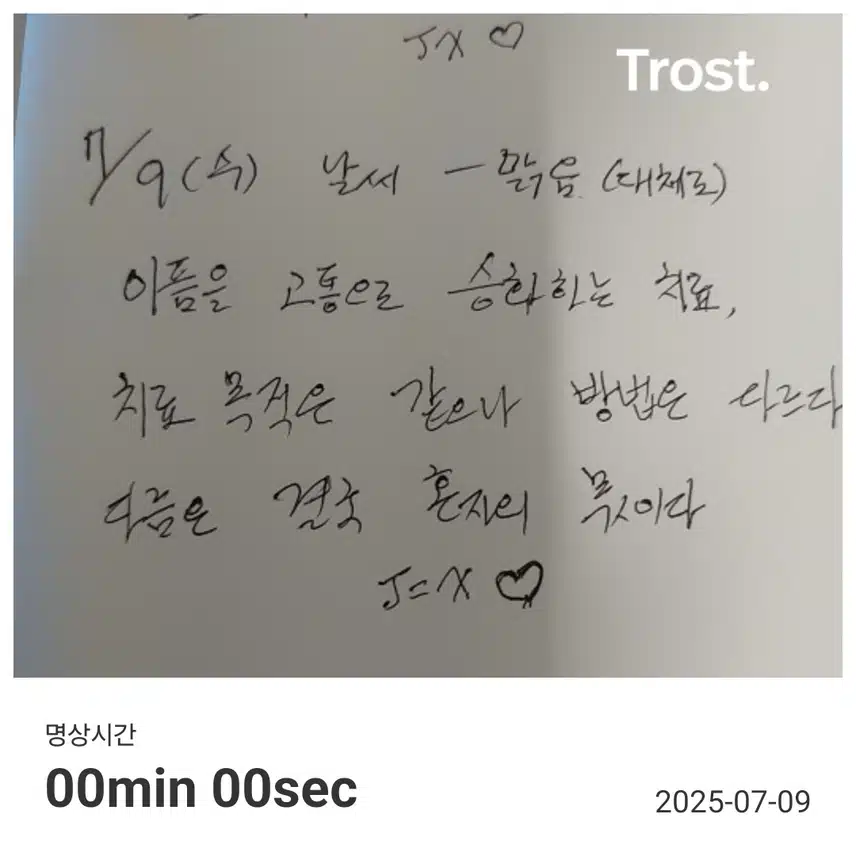 JX ♡
Trost.
7/9(수) 날씨 - 맑음 (대체로)
아픔을 고통으로 승화하는 치료,
치료 목적은 같으나 방법은 다르다
결국 혼자의 몫이다
J=X ♡
명상시간
00min 00sec
2025-07-09